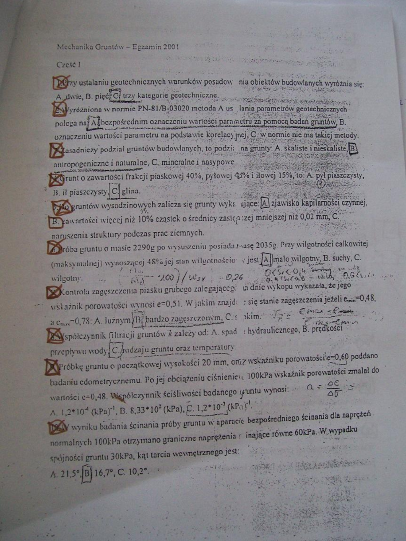 Mechanika Gruntów – Egzamin 2001
Część I
Przy ustalaniu geotechnicznych warunków posadow nia obiektów budowlanych wyróżnia się:
A. dwie, B. pięć, C. trzy kategorie geotechniczne.
Wyróżniona w normie PN-81/B-03020 metoda A us lania parametrów geotechnicznych
polega na A. bezpośrednim oznaczeniu wartości parametru za pomocą badań gruntów, B.
oznaczeniu wartości parametru na podstawie korelacyjnej, C. w normie nie ma takiej metody.
Zasadniczy podział gruntów budowlanych, to podzi na grunty A. skaliste i nieskaliste, B.
antropogeniczne i naturalne, C. mineralne i nasypowe
Grunt o zawartości frakcji piaskowej 40%, pyłowej 45% i iłowej 15%, to: A. pył piaszczysty,
B. ił piaszczysty, C. glina.
Do gruntów wysadzinowych zalicza się grunty wyka ujące A. zjawisko kapilarności czynnej,
B. zawartości więcej niż 10% cząstek o średnicy zastępczej mniejszej niż 0,02 mm, C.
naruszenia struktury podczas prac ziemnych.
Próba gruntu o masie 2290g po wysuszeniu posiada masę 2035g. Przy wilgotności całkowitej
(maksymalnej) wynoszącej 48% jej stan wilgotności jest A. mało wilgotny, B. suchy, C.
wilgotny.
Kontrola zagęszczenia piasku grubego zalegającego na dnie wykopu wykazała, że jego
wskaźnik porowatości wynosi e=0,51. W jakim znajd się stanie zagęszczenia jeżeli emin=0,48,
a emax=0,78: A. luźnym, B. bardzo zagęszczonym, C. s kim.
Współczynnik filtracji gruntów k zależy od: A. spad hydraulicznego, B. prędkości
przepływu, C. rodzaju gruntu oraz temperatury
Próbkę gruntu o początkowej wysokości 20 mm, oraz wskaźniku porowatości e=0,60 poddano
badaniu edometrycznemu. Po jej obciążeniu ciśnieniem 100kPa wskaźnik porowatości zmalał do
wartości e=0,48. Współczynnik ściśliwości badanego gruntu wynosi:
A. 1,2*10-4 (kPa)-1, B. 8,33*10² (kPa), C. 1,2*10-3 (kPa)-1
W wyniku badania ścinania próby gruntu w aparacie bezpośredniego ścinania dla naprężeń
normalnych 100kPa otrzymano graniczne naprężenia nające równe 60kPa. W wypadku
spójności gruntu 30kPa, kąt tarcia wewnętrznego jest:
A. 21,5°, B. 16,7°, C. 10,2°.